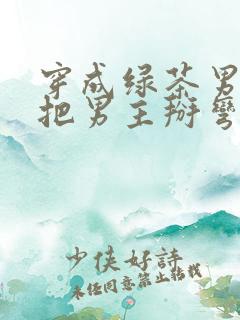 穿成绿茶男
把男主掰弯
少侠好诗
未经同意禁止转载